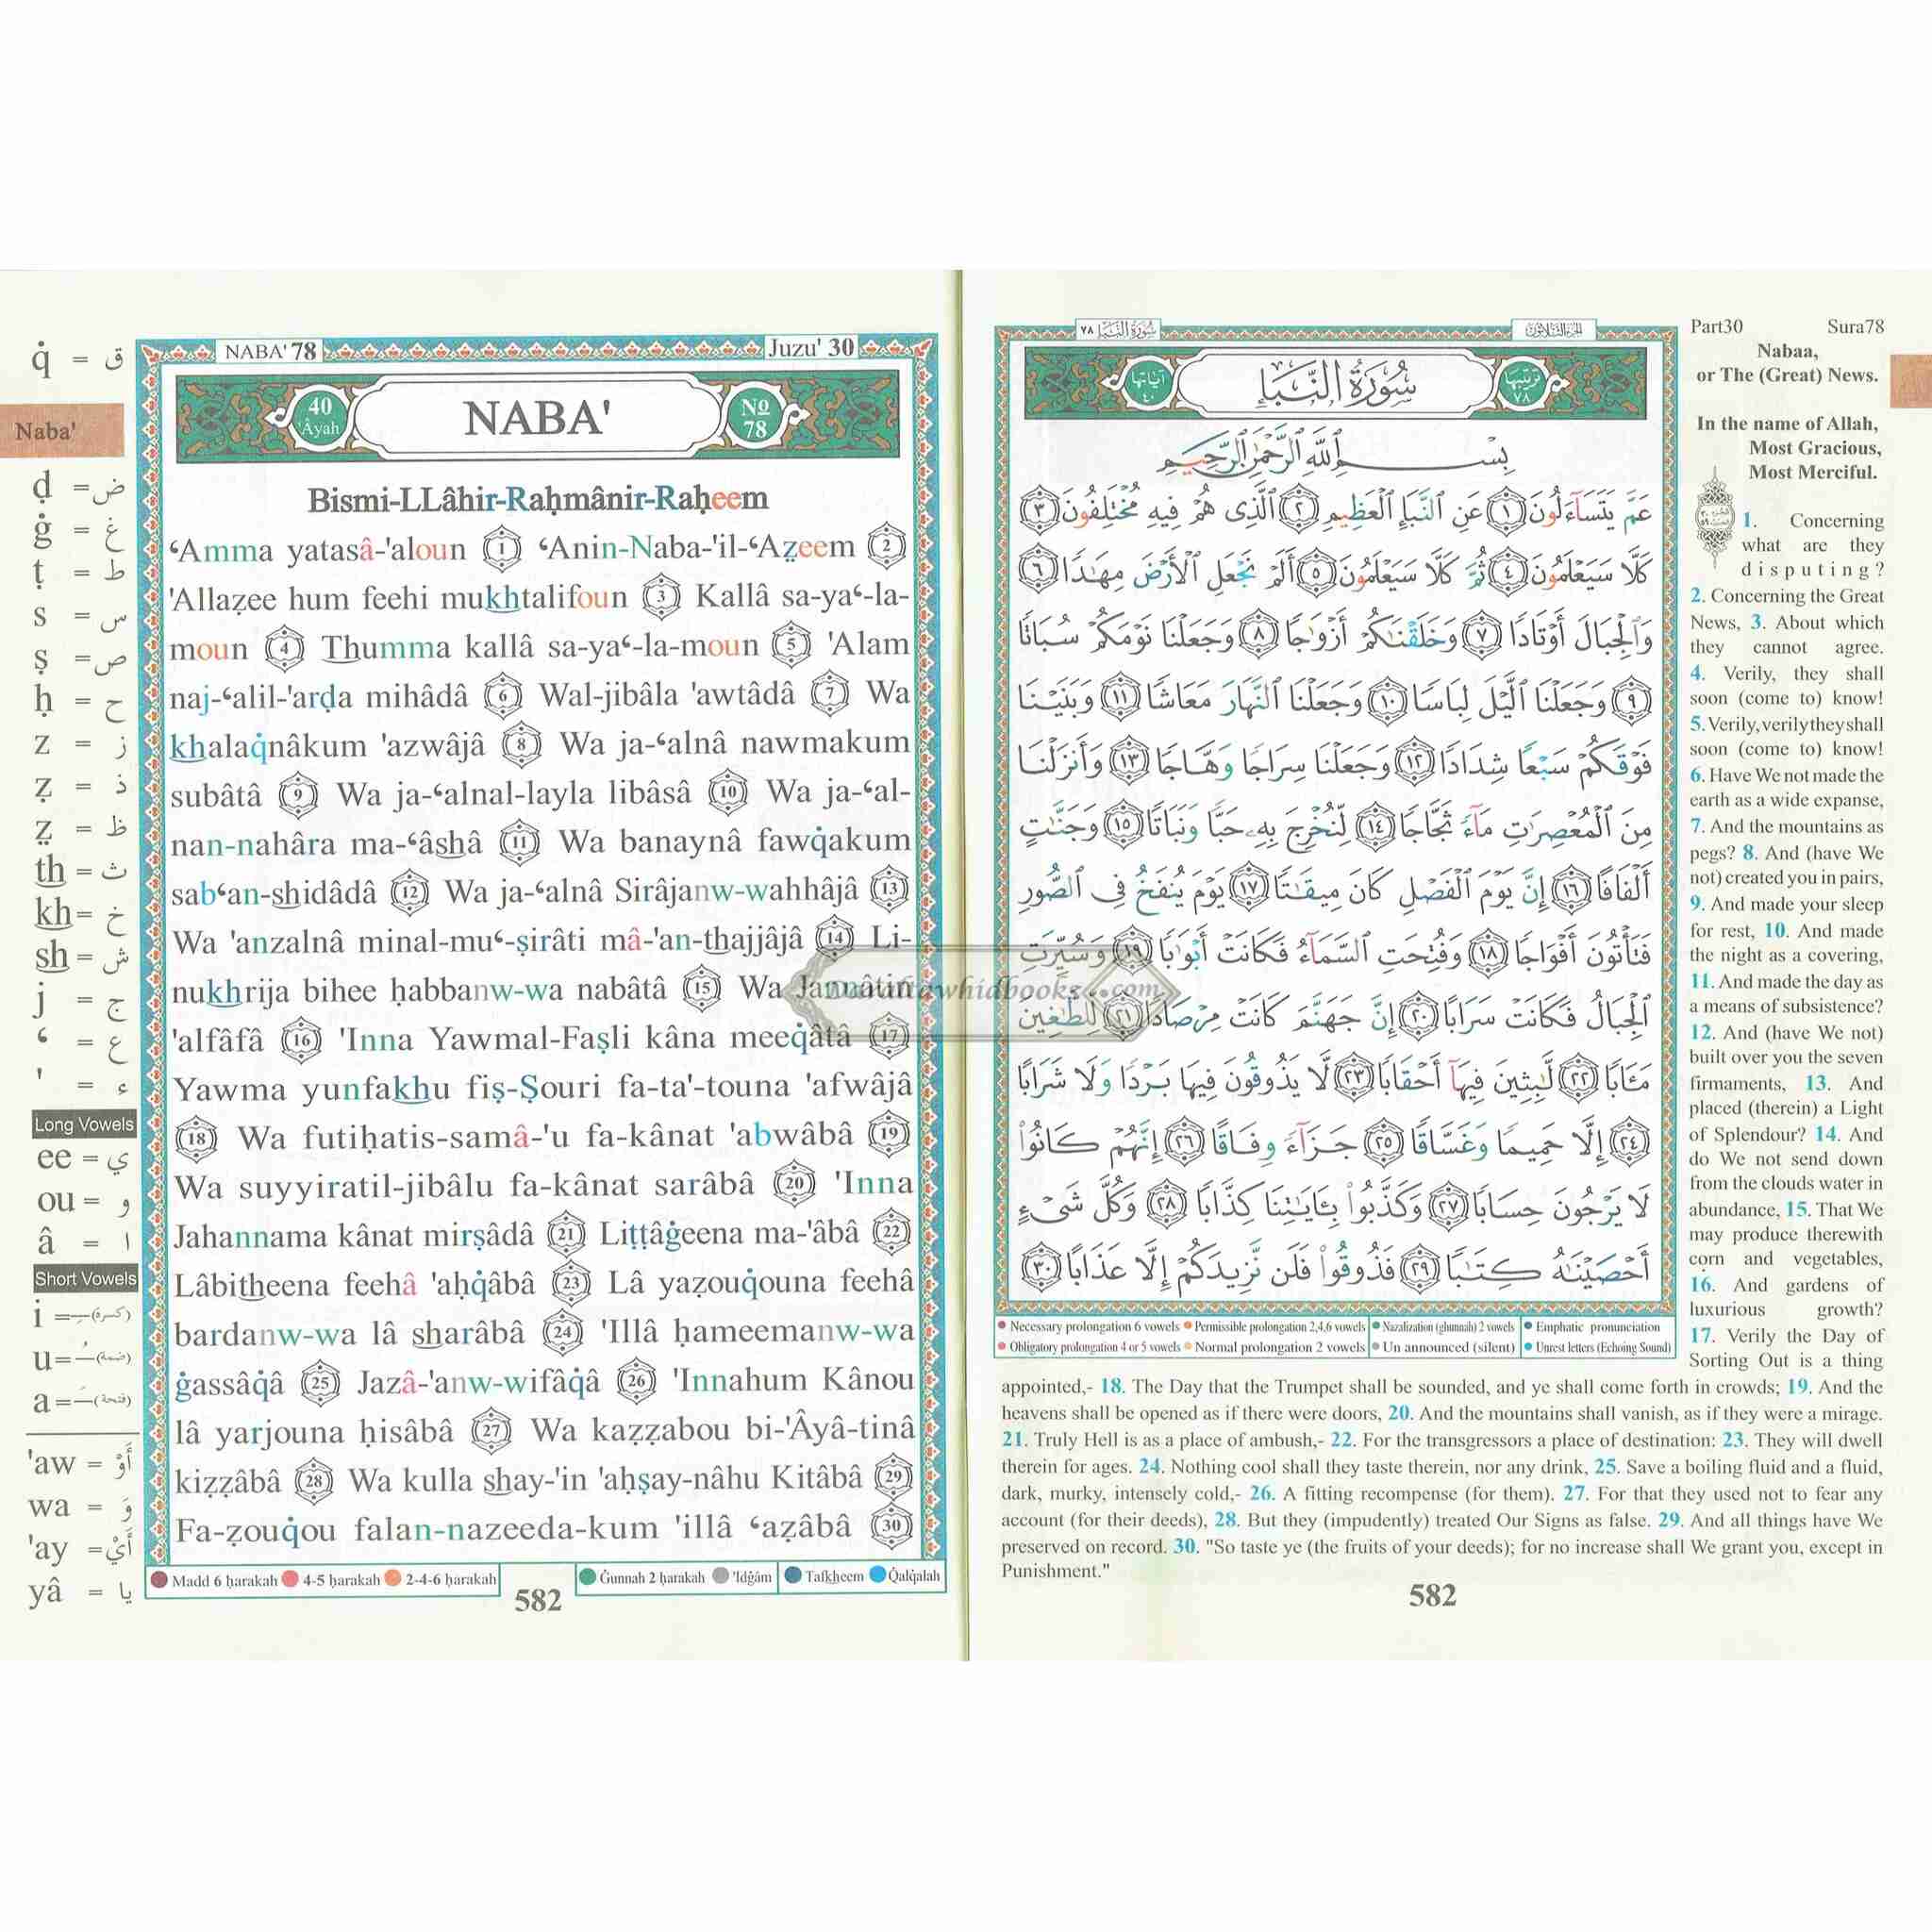 q̇ = ق
Naba'
ḍ = ض
ġ = غ
ṭ = ط
s = س
ṣ = ص
ḥ = ح
z = ز
ẓ = ذ
ẓ̤ = ظ
th = ث
kh = خ
sh = ش
j = ج
ʻ = ع
' = ء
Long Vowels
ee = ي
ou = و
â = ا
Short Vowels
i = ـِ (كسرة)
u = ـُ (ضمة)
a = ـَ (فتحة)
'aw = أَوْ
wa = وَ
'ay = أَيْ
yâ = يا
NABA' 78
Juzu' 30
40 'Âyah
NABA'
No 78
Bismi-LLâhir-Raḥmânir-Raḥeem
ʻAmma yatasâ-'aloun 1 ʻAnin-Naba-'il-ʻAẓ̤eem 2
'Allaẓee hum feehi mukhtalifoun 3 Kallâ sa-yaʻ-la-
moun 4 Thumma kallâ sa-yaʻ-la-moun 5 'Alam
naj-ʻalil-'arḍa mihâdâ 6 Wal-jibâla 'awtâdâ 7 Wa
khalaq̇nâkum 'azwâjâ 8 Wa ja-ʻalnâ nawmakum
subâtâ 9 Wa ja-ʻalnal-layla libâsâ 10 Wa ja-ʻal-
nan-nahâra ma-ʻâshâ 11 Wa banaynâ fawq̇akum
sabʻan-shidâdâ 12 Wa ja-ʻalnâ Sirâjanw-wahhâjâ 13
Wa 'anzalnâ minal-muʻ-ṣirâti mâ-'an-thajjâjâ 14 Li-
nukhrija bihee ḥabbanw-wa nabâtâ 15 Wa Jannâtin
'alfâfâ 16 'Inna Yawmal-Faṣli kâna meeq̇âtâ 17
Yawma yunfakhu fiṣ-Ṣouri fa-ta'-touna 'afwâjâ
18 Wa futiḥatis-samâ-'u fa-kânat 'abwâbâ 19
Wa suyyiratil-jibâlu fa-kânat sarâbâ 20 'Inna
Jahannama kânat mirṣâdâ 21 Liṭṭâġeena ma-'âbâ 22
Lâbitheena feehâ 'aḥq̇âbâ 23 Lâ yaẓouq̇ouna feehâ
bardanw-wa lâ sharâbâ 24 'Illâ ḥameemanw-wa
ġassâq̇â 25 Jazâ-'anw-wifâq̇â 26 'Innahum Kânou
lâ yarjouna ḥisâbâ 27 Wa kaẓẓabou bi-'Âyâ-tinâ
kiẓẓâbâ 28 Wa kulla shay-'in 'aḥṣay-nâhu Kitâbâ 29
Fa-ẓouq̇ou falan-nazeeda-kum 'illâ ʻaẓâbâ 30
Madd 6 ḥarakah 4-5 ḥarakah 2-4-6 ḥarakah
Ġunnah 2 ḥarakah 'Idġâm Tafkheem Q̇alq̇alah
582
سُورَةُ النَّبَإِ ٧٨
الجزء الثلاثون
آياتها ٤٠
سُورَةُ النَّبَإِ
ترتيبها ٧٨
بِسْمِ ٱللَّهِ ٱلرَّحْمَٰنِ ٱلرَّحِيمِ
عَمَّ يَتَسَآءَلُونَ ١ عَنِ ٱلنَّبَإِ ٱلْعَظِيمِ ٢ ٱلَّذِى هُمْ فِيهِ مُخْتَلِفُونَ ٣
كَلَّا سَيَعْلَمُونَ ٤ ثُمَّ كَلَّا سَيَعْلَمُونَ ٥ أَلَمْ نَجْعَلِ ٱلْأَرْضَ مِهَٰدًا ٦
وَٱلْجِبَالَ أَوْتَادًا ٧ وَخَلَقْنَٰكُمْ أَزْوَٰجًا ٨ وَجَعَلْنَا نَوْمَكُمْ سُبَاتًا
٩ وَجَعَلْنَا ٱلَّيْلَ لِبَاسًا ١٠ وَجَعَلْنَا ٱلنَّهَارَ مَعَاشًا ١١ وَبَنَيْنَا
فَوْقَكُمْ سَبْعًا شِدَادًا ١٢ وَجَعَلْنَا سِرَاجًا وَهَّاجًا ١٣ وَأَنزَلْنَا
مِنَ ٱلْمُعْصِرَٰتِ مَآءً ثَجَّاجًا ١٤ لِّنُخْرِجَ بِهِۦ حَبًّا وَنَبَاتًا ١٥ وَجَنَّٰتٍ
أَلْفَافًا ١٦ إِنَّ يَوْمَ ٱلْفَصْلِ كَانَ مِيقَٰتًا ١٧ يَوْمَ يُنفَخُ فِى ٱلصُّورِ
فَتَأْتُونَ أَفْوَاجًا ١٨ وَفُتِحَتِ ٱلسَّمَآءُ فَكَانَتْ أَبْوَٰبًا ١٩ وَسُيِّرَتِ
ٱلْجِبَالُ فَكَانَتْ سَرَابًا ٢٠ إِنَّ جَهَنَّمَ كَانَتْ مِرْصَادًا ٢١ لِّلطَّٰغِينَ
مَـَٔابًا ٢٢ لَّٰبِثِينَ فِيهَآ أَحْقَابًا ٢٣ لَّا يَذُوقُونَ فِيهَا بَرْدًا وَلَا شَرَابًا
٢٤ إِلَّا حَمِيمًا وَغَسَّاقًا ٢٥ جَزَآءً وِفَاقًا ٢٦ إِنَّهُمْ كَانُوا۟
لَا يَرْجُونَ حِسَابًا ٢٧ وَكَذَّبُوا۟ بِـَٔايَٰتِنَا كِذَّابًا ٢٨ وَكُلَّ شَىْءٍ
أَحْصَيْنَٰهُ كِتَٰبًا ٢٩ فَذُوقُوا۟ فَلَن نَّزِيدَكُمْ إِلَّا عَذَابًا ٣٠
Necessary prolongation 6 vowels Permissible prolongation 2,4,6 vowels Nazalization (ghunnah) 2 vowels Emphatic pronunciation
Obligatory prolongation 4 or 5 vowels Normal prolongation 2 vowels Un announced (silent) Unrest letters (Echoing Sound)
Part30 Sura78
Nabaa,
or The (Great) News.
In the name of Allah,
Most Gracious,
Most Merciful.
1. Concerning
what are they
disputing?
2. Concerning the Great
News, 3. About which
they cannot agree.
4. Verily, they shall
soon (come to) know!
5. Verily, verily they shall
soon (come to) know!
6. Have We not made the
earth as a wide expanse,
7. And the mountains as
pegs? 8. And (have We
not) created you in pairs,
9. And made your sleep
for rest, 10. And made
the night as a covering,
11. And made the day as
a means of subsistence?
12. And (have We not)
built over you the seven
firmaments, 13. And
placed (therein) a Light
of Splendour? 14. And
do We not send down
from the clouds water in
abundance, 15. That We
may produce therewith
corn and vegetables,
16. And gardens of
luxurious growth?
17. Verily the Day of
Sorting Out is a thing
appointed,- 18. The Day that the Trumpet shall be sounded, and ye shall come forth in crowds; 19. And the
heavens shall be opened as if there were doors, 20. And the mountains shall vanish, as if they were a mirage.
21. Truly Hell is as a place of ambush,- 22. For the transgressors a place of destination: 23. They will dwell
therein for ages. 24. Nothing cool shall they taste therein, nor any drink, 25. Save a boiling fluid and a fluid,
dark, murky, intensely cold,- 26. A fitting recompense (for them). 27. For that they used not to fear any
account (for their deeds), 28. But they (impudently) treated Our Signs as false. 29. And all things have We
preserved on record. 30. "So taste ye (the fruits of your deeds); for no increase shall We grant you, except in
Punishment."
582